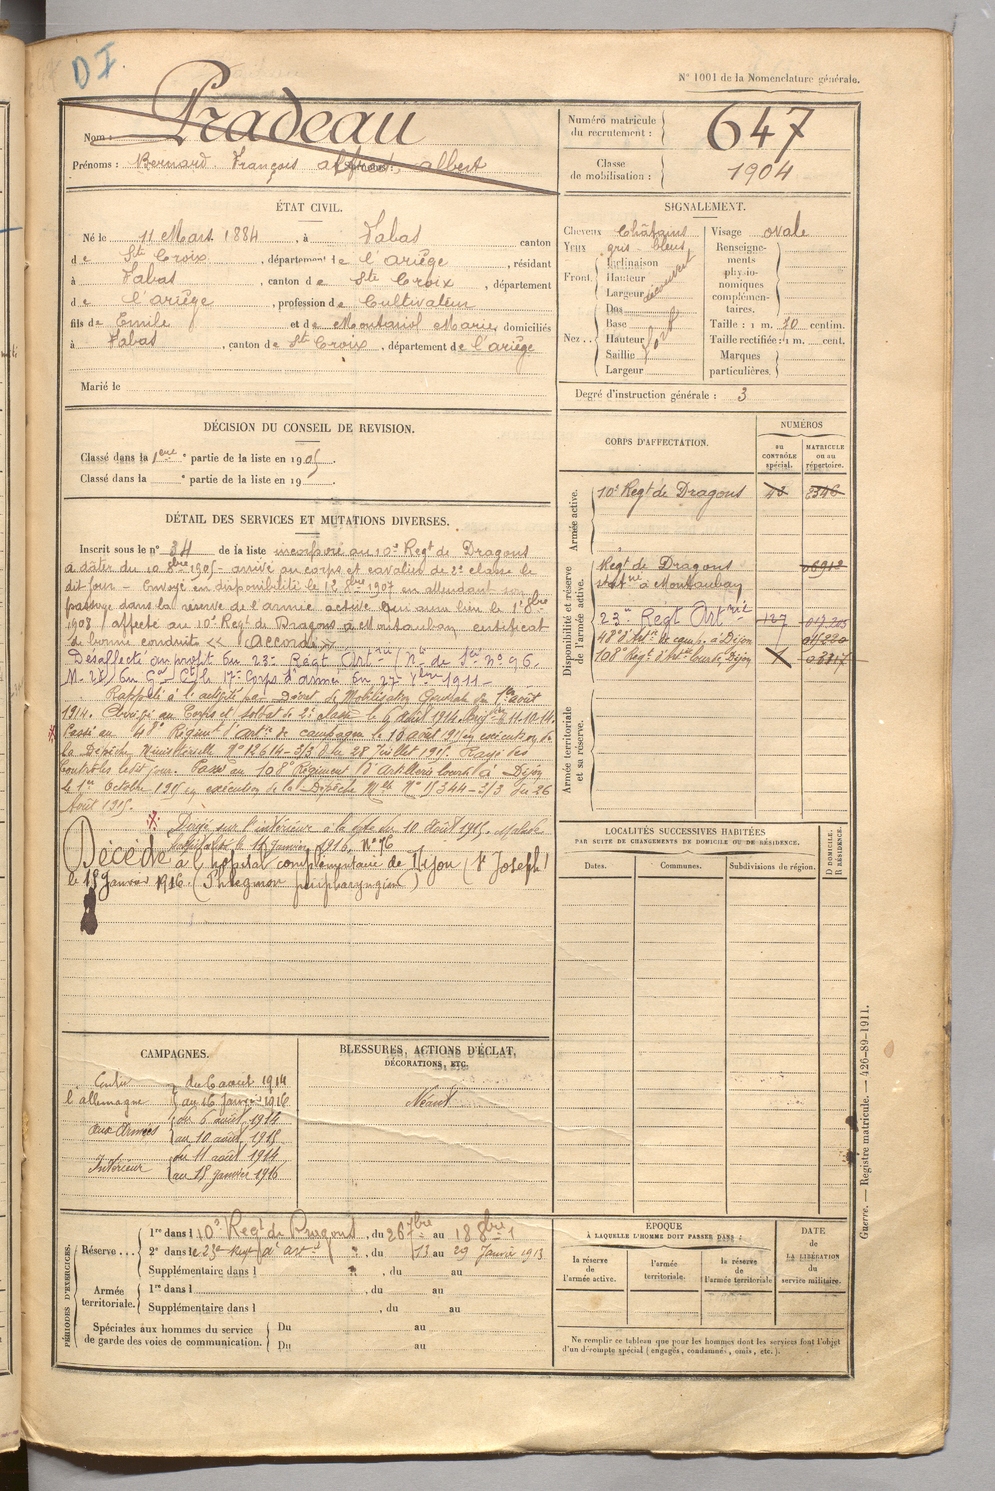 DI
N° 1001 de la Nomenclature générale.
Nom : Pradeau
Prénoms : Bernard François albert
Numéro matricule du recrutement : 647
Classe de mobilisation : 1904
ÉTAT CIVIL.
Né le 11 Mars 1884, à Fabas canton
de Ste Croix, département de l'ariège, résidant
à Fabas, canton de Ste Croix, département
de l'ariège, profession de Cultivateur
fils de Emile et de Montariol Marie, domiciliés
à Fabas, canton de Ste Croix, département de l'ariège
Marié le
SIGNALEMENT.
Cheveux Châtains
Yeux gris-bleus
Front
Inclinaison
Hauteur
Largeur
découvert
Nez
Dos
Base
Hauteur
Saillie
Largeur
fort
Visage ovale
Renseignements physionomiques complémentaires.
Taille : 1 m. 70 centim.
Taille rectifiée : 1 m. cent.
Marques particulières.
Degré d'instruction générale : 3
DÉCISION DU CONSEIL DE REVISION.
Classé dans la 1ere partie de la liste en 1905.
Classé dans la e partie de la liste en 19 .
DÉTAIL DES SERVICES ET MUTATIONS DIVERSES.
Inscrit sous le n° 34 de la liste incorporé au 10e Regt de Dragons
à dater du 10 8bre 1905 - arrivé au corps et cavalier de 2e classe le
dit jour - Envoyé en disponibilité le 12 8bre 1907 en attendant son
passage dans la réserve de l'armée active qui aura lieu le 1er 8bre
1908, affecté au 10e Regt de Dragons à Montauban, certificat
de bonne conduite << Accordé >>
Désaffecté au profit du 23e Regt Artrie (Nte de Sce n° 96.
du Gal Ct le 17e Corps d'armée du 27 1911 -
Rappelé à l'activité par Décret de Mobilisation Générale du 1er août
1914. Arrivé au Corps et soldat de 2e classe le 6 août 1914. 11-10-14.
Passé au 48e Régiment d'Artie de campagne le 10 août 1915 en exécution de
la Dépêche Ministérielle N° 12614-3/3 du 28 Juillet 1915. Rayé des
Contrôles ledit jour. Passé au 108e Régiment d'Artillerie lourde à Dijon
le 1er Octobre 1915 en exécution de la Dépêche Mlle N° 15344-3/3 du 26
Août 1915.
Dirigé sur l'intérieur à la date du 10 Août 1915. Malade
hospitalisé le Janvier 1916. N° 76
Décédé à l'hôpital complémentaire de Dijon (St Joseph)
le 15 Janvier 1916. (Phlegmon peripharyngien)
CORPS D'AFFECTATION.
NUMÉROS
au CONTRÔLE spécial.
MATRICULE ou au répertoire.
Armée active.
10e Regt de Dragons
Disponibilité et réserve de l'armée active.
Regt de Dragons
à Montauban
23e Regt Artrie 127
48e d'Artie de camp. à Dijon
108e Regt d'Artie lourde, Dijon
Armée territoriale et sa réserve.
LOCALITÉS SUCCESSIVES HABITÉES
PAR SUITE DE CHANGEMENTS DE DOMICILE OU DE RÉSIDENCE.
Dates.
Communes.
Subdivisions de région.
D DOMICILE.
R RÉSIDENCE.
CAMPAGNES.
Contre l'allemagne
du 6 août 1914
au 16 Janvier 1916
aux Armées
du 6 août 1914
au 10 août 1915
Intérieur
du 11 août 1914
au 15 Janvier 1916
BLESSURES, ACTIONS D'ÉCLAT,
DÉCORATIONS, ETC.
Néant
PÉRIODES D'EXERCICES.
Réserve
1re dans l 10e Regt de Dragons, du 26 7bre au 18 8bre 1
2e dans le 23e Regt d'artie, du 13 au 29 Janvier 1913
Supplémentaire dans l , du au
Armée territoriale.
1re dans l , du au
Supplémentaire dans l , du au
Spéciales aux hommes du service
de garde des voies de communication.
Du au
Du au
ÉPOQUE
À LAQUELLE L'HOMME DOIT PASSER DANS :
la réserve de l'armée active.
l'armée territoriale.
la réserve de l'armée territoriale
DATE
de LA LIBÉRATION
du service militaire.
Ne remplir ce tableau que pour les hommes dont les services font l'objet
d'un décompte spécial (engagés, condamnés, omis, etc.).
Guerre. — Registre matricule. — 426-89-1911.